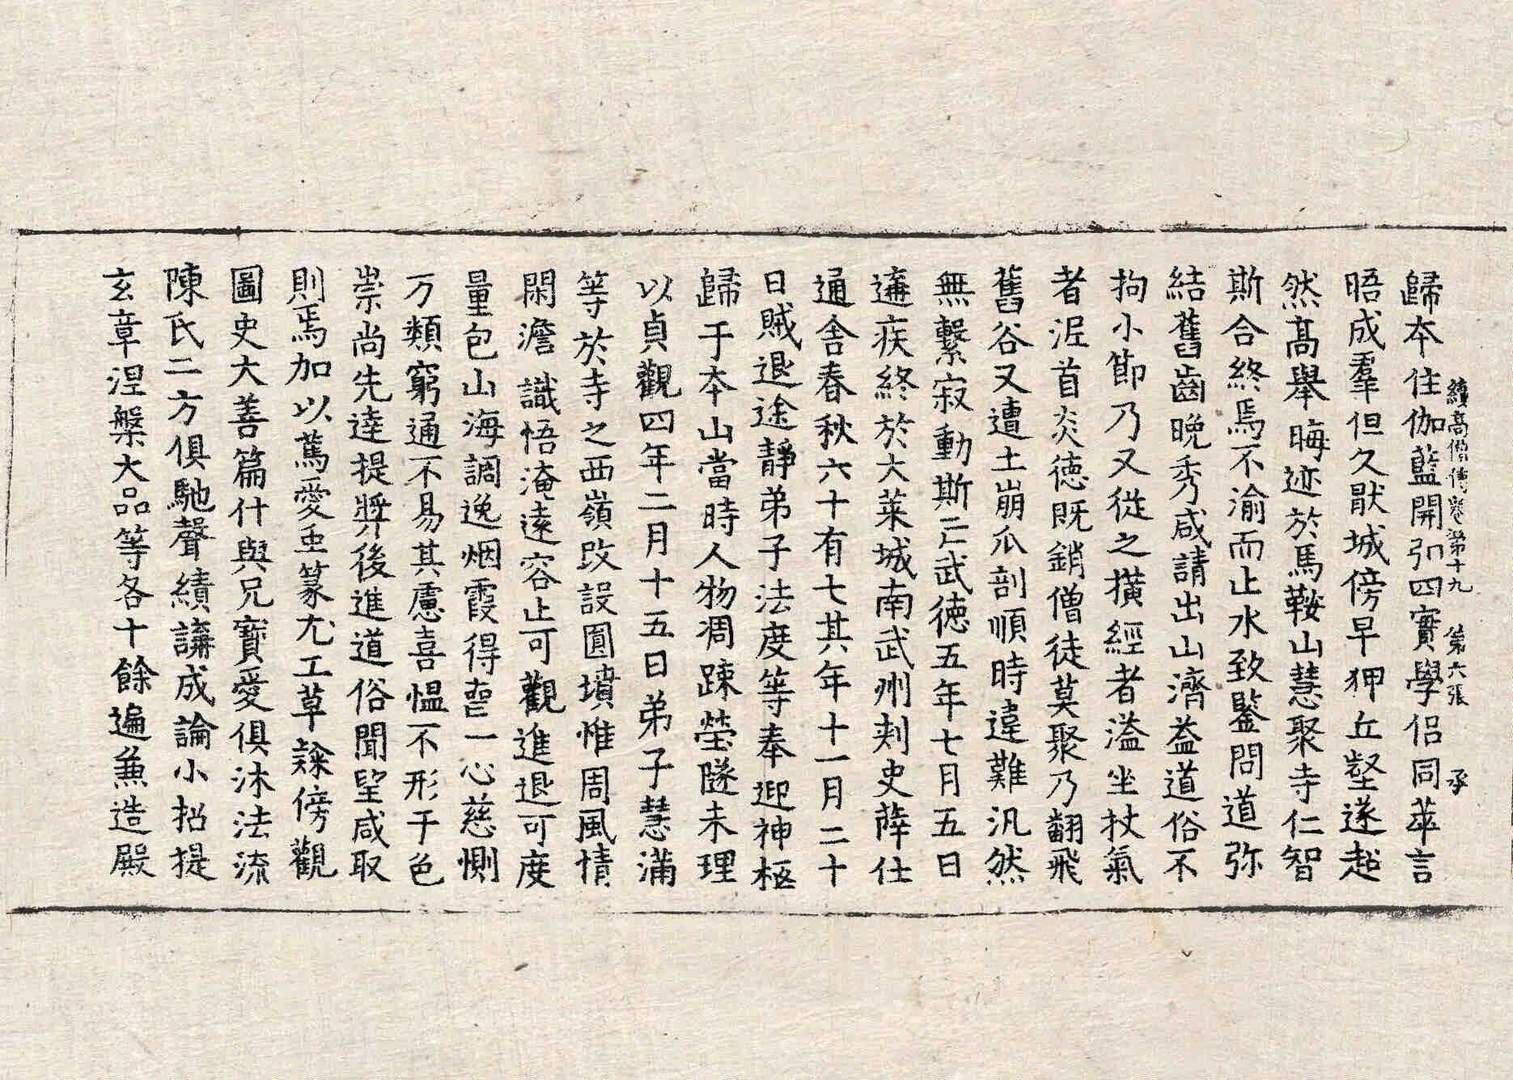 續高僧傳卷第十九　第六張　承
歸本住伽藍開引四實學侶同萃言
晤成羣但久猒城傍早狎丘壑遂超
然高舉晦迹於馬鞍山慧聚寺仁智
斯合終焉不渝而止水致鑒問道弥
結舊齒晚秀咸請出山濟益道俗不
拘小節乃又從之橫經者溢坐杖氣
者泥首炎徳既銷僧徒莫聚乃翻飛
舊谷又遭土崩瓜剖順時違難汎然
無繫寂動斯亡武徳五年七月五日
遘疾終於大萊城南武州刾史薛仕
通舍春秋六十有七其年十一月二十
日賊退途靜弟子法度等奉迎神柩
歸于本山當時人物凋踈塋隧未理
以貞觀四年二月十五日弟子慧滿
等於寺之西嶺改設圓墳惟周風情
閑澹識悟淹遠容止可觀進退可度
量包山海調逸烟霞得䘮一心慈惻
万類窮通不易其慮喜慍不形于色
崇尚先達提奬後進道俗聞望咸取
則焉加以篤愛重篆尤工草隸傍觀
圖史大善篇什與兄寶愛俱沐法流
陳氏二方俱馳聲績講成論小招提
玄章涅槃大品等各十餘遍兼造殿